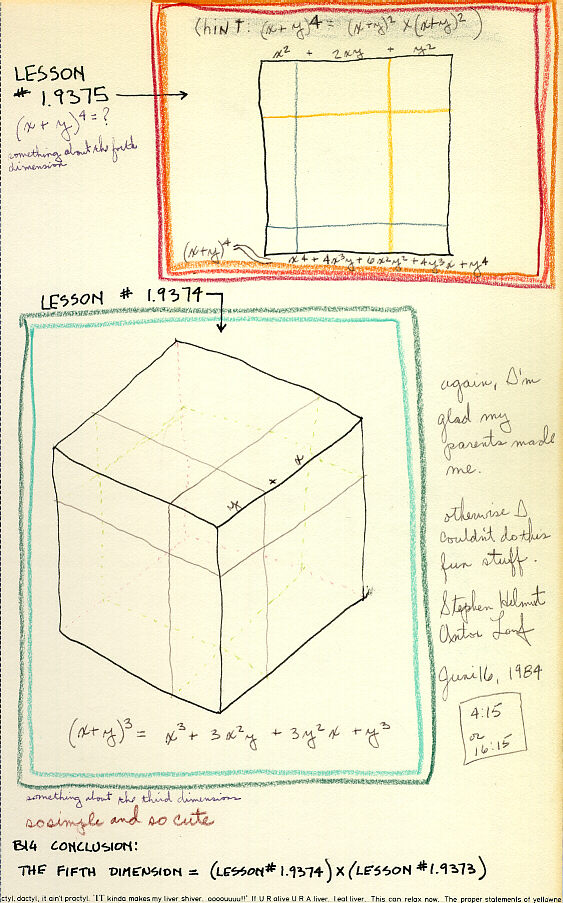 (hint: (x+y)⁴ = (x+y)² x (x+y)² )
x² + 2xy + y²
LESSON
# 1.9375
(x + y)⁴ = ?
something about the forth
dimension
(x+y)⁴
x⁴ + 4x³y + 6x²y² + 4y³x + y⁴
LESSON # 1.9374
y + x
(x+y)³ = x³ + 3x²y + 3y²x + y³
again, I'm
glad my
parents made
me.
otherwise I
couldn't do this
fun stuff.
Stephen Helmut
Antor
June 16, 1984
4:15
or
16:15
something about the third dimensions
so simple and so cute
BIG CONCLUSION:
THE FIFTH DIMENSION = (LESSON # 1.9374) X (LESSON # 1.9373)
ctyl, dactyl, it ain't practyl. 'IT kinda makes my liver shiver. oooouuu!!' If U R alive U R A liver. Leal liver. This can relax now. The proper statements of yellowne